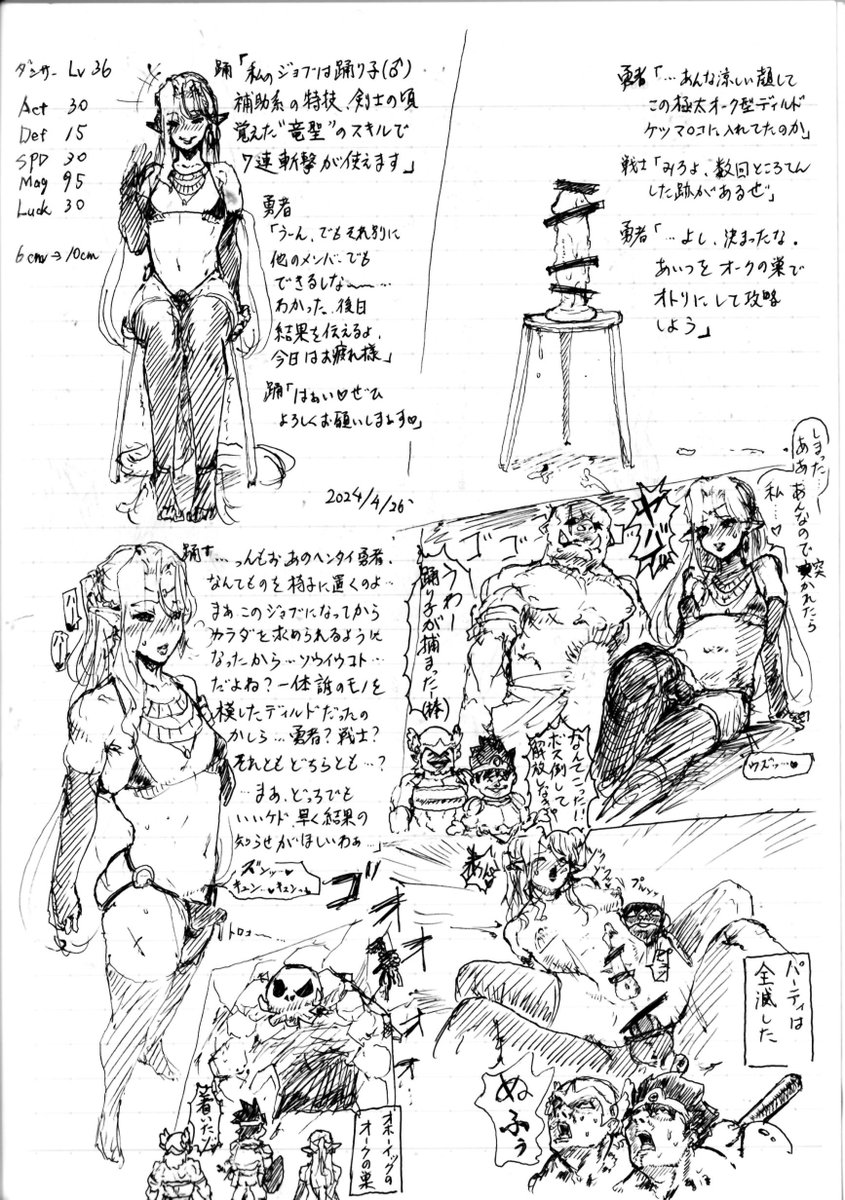 ダンサー Lv 36
Act 30
Def 15
SPD 30
Mag 95
Luck 30
6cm→10cm
踊「私のジョブは踊り子(♂)
補助系の特技、剣士の頃
覚えた"竜聖"のスキルで
7連斬撃が使えます」
勇者
「うーん、でもそれ別に
他のメンバーでも
できるしな〜〜…
わかった、後日
結果を伝えるよ、
今日はお疲れ様」
踊「はぁい♡ぜひ
よろしくお願いしまぁす♡」
2024/4/26
勇者「…あんな涼しい顔して
この極太オーク型ディルド
ケツマ○コに入れてたのか」
戦士「みろよ、数回ところてん
した跡があるぜ」
勇者「…よし、決まったな。
あいつをオークの巣で
オトリにして攻略
しよう」
踊す
…っんもお あのヘンタイ勇者、
なんてものを椅子に置くのよ…
まぁこのジョブになってから
カラダを求められるように
なったから…ソウイウコト…
だよね？一体誰のモノを
模したディルドだったの
かしら…勇者？戦士？
それともどちらとも…？
…まあ、どっちでも
いいケド、早く結果の
知らせがほしいわぁ…」
ズンッ…♡
キュン…♡キュン…♡
トロォ〜…
ゴオオオオ
着いたゾ
オホーイッグの
オークの巣
しまった…
ああ あんなので突かれたら
私…♡
ヤバッ
ゴゴゴ
うわー
踊り子が捕まった!(棒)
なんてこった!!
ボス倒して
解放しなきゃ
ウズッ…♡
プルッ
パーティは
全滅した
ぬふぅ